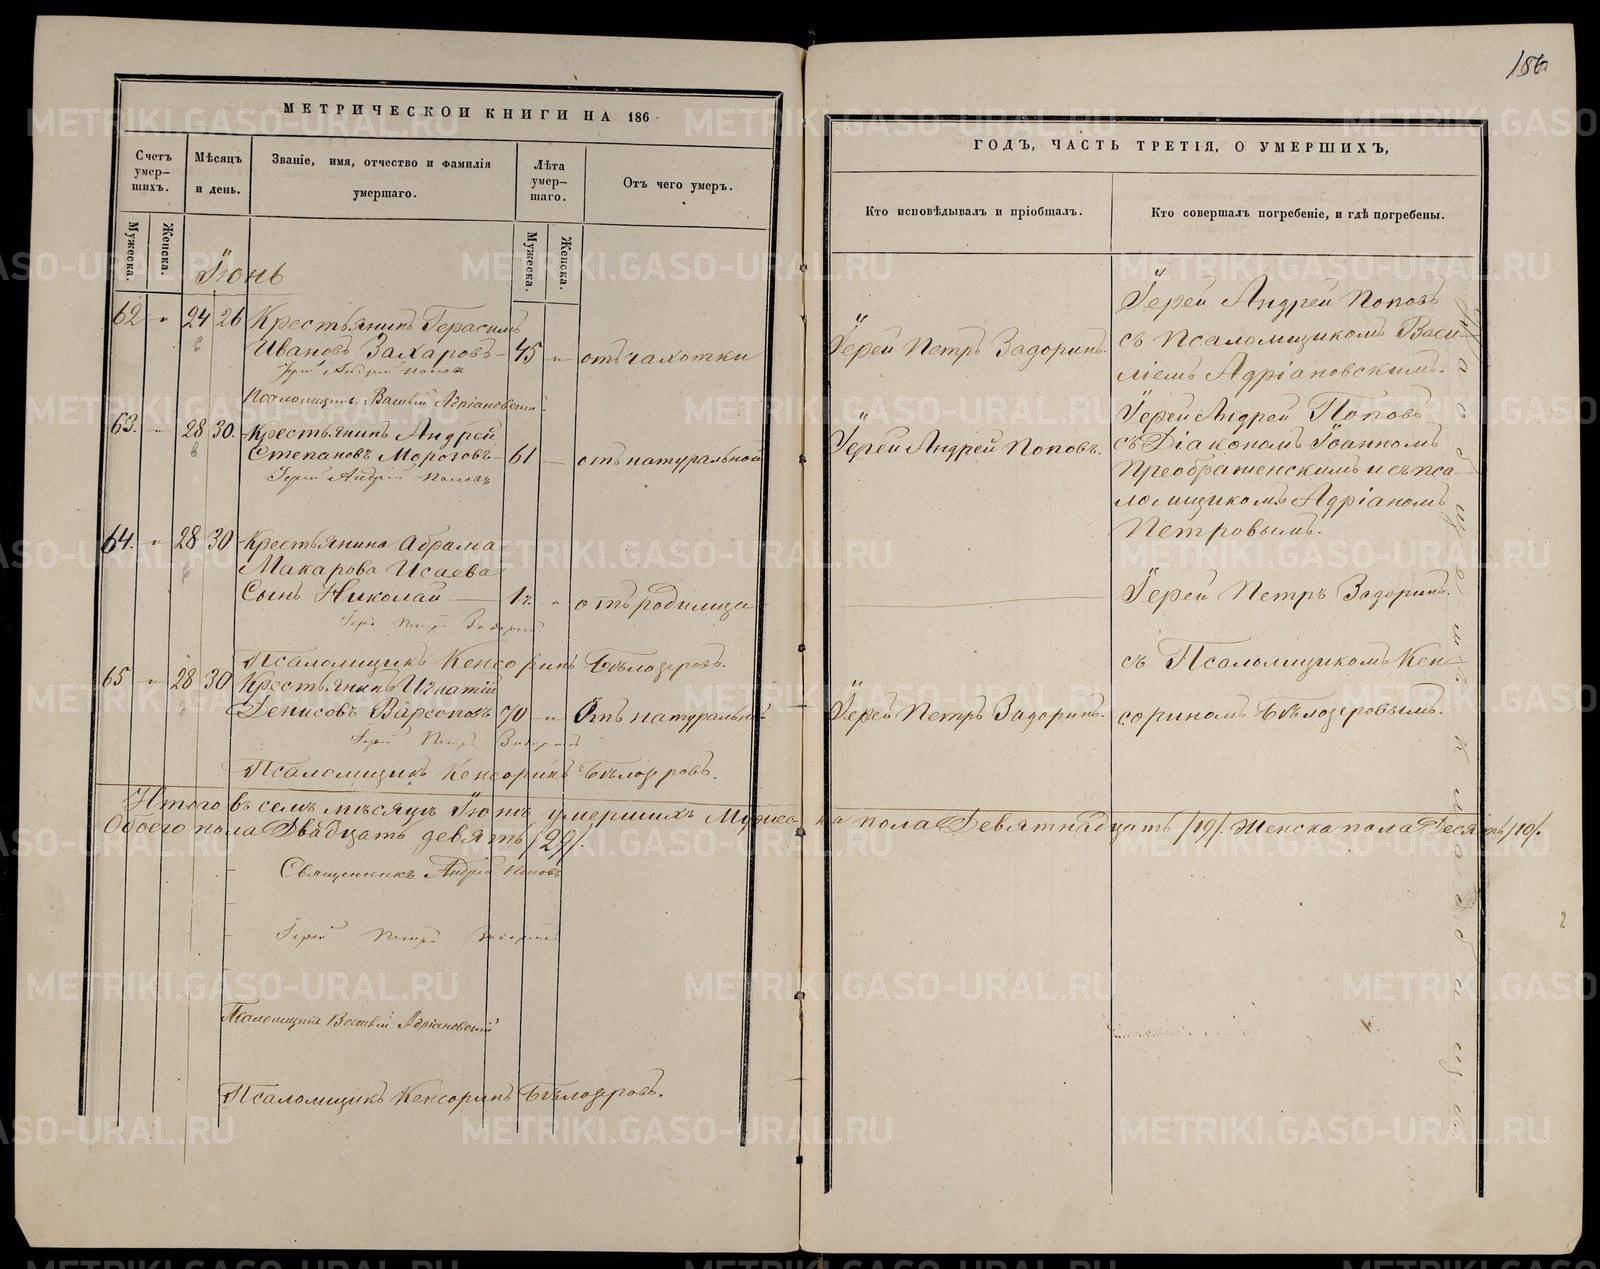 186
МЕТРИЧЕСКОЙ КНИГИ НА 186
Счетъ умер-шихъ.
Мужеска.
Женска.
Мѣсяцъ и день.
Званіе, имя, отчество и фамилія умершаго.
Лѣта умер-шаго.
Мужеска.
Женска.
Отъ чего умеръ.
ГОДЪ, ЧАСТЬ ТРЕТІЯ, О УМЕРШИХЪ,
Кто исповѣдывалъ и пріобщалъ.
Кто совершалъ погребеніе, и гдѣ погребены.
Іюнь
62 " 24 26 Крестьянинъ Герасимъ
Ивановъ Захаровъ 45 " отъ чахотки
Іерей Петръ Задоринъ.
Іерей Андрей Поповъ
съ Псаломщикомъ Васи-
ліемъ Адріановскимъ.
Іерей Андрей Поповъ
Псаломщикъ Василій Адріановскій.
63. " 28 30. Крестьянинъ Андрей
Степановъ Морозовъ 61 — отъ натуральной
Іерей Андрей Поповъ
Іерей Андрей Поповъ.
Іерей Андрей Поповъ
съ Діакономъ Іоанномъ
Преображенскимъ и съ пса-
ломщикомъ Адріаномъ
Петровымъ.
64. " 28 30 Крестьянина Абрама
Макарова Исаева
Сынъ Николай 1 г. " отъ родимца
Іерей Петръ Задоринъ
Псаломщикъ Кенсоринъ Бѣлозеровъ.
Іерей Петръ Задоринъ.
съ Псаломщикомъ Кен-
сориномъ Бѣлозеровымъ.
65 " 28 30 Крестьянинъ Игнатій
Денисовъ 70 " Отъ натуральной
Іерей Петръ Задоринъ.
Іерей Петръ Задоринъ
Псаломщикъ Кенсоринъ Бѣлозеровъ.
На общемъ кладбищѣ
Итого въ семъ мѣсяцѣ Іюнѣ умершихъ Мужеска пола Девятнадцать /19/. Женска пола Десять /10/.
Обоего пола Двадцать девять /29/.
Священникъ Андрей Поповъ
Іерей Петръ Задоринъ
Псаломщикъ Василій Адріановскій
Псаломщикъ Кенсоринъ Бѣлозеровъ.
METRIKI.GASO-URAL.RU